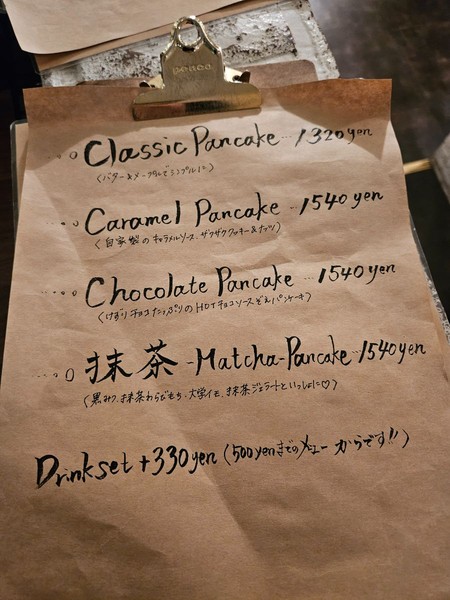 penco
Classic Pancake … 1320yen
(バター&メープルでシンプルに)
Caramel Pancake … 1540yen
(自家製のキャラメルソース、ザクザククッキー&ナッツ)
Chocolate Pancake … 1540yen
(けずりチョコたっぷりのHOTチョコソースぞえパンケーキ)
抹茶 -Matcha-Pancake … 1540yen
(黒みつ、抹茶わらびもち、大学イモ、抹茶ジェラートといっしょに♡)
Drinkset +330yen (500yenまでのメニューからです!!)